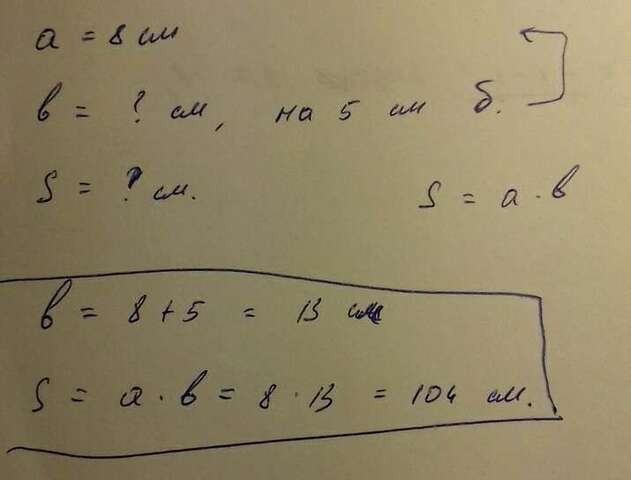 a = 8 см
в = ? см, на 5 см б.
S = ? см.
S = a · в
в = 8 + 5 = 13 см
S = a · в = 8 · 13 = 104 см.